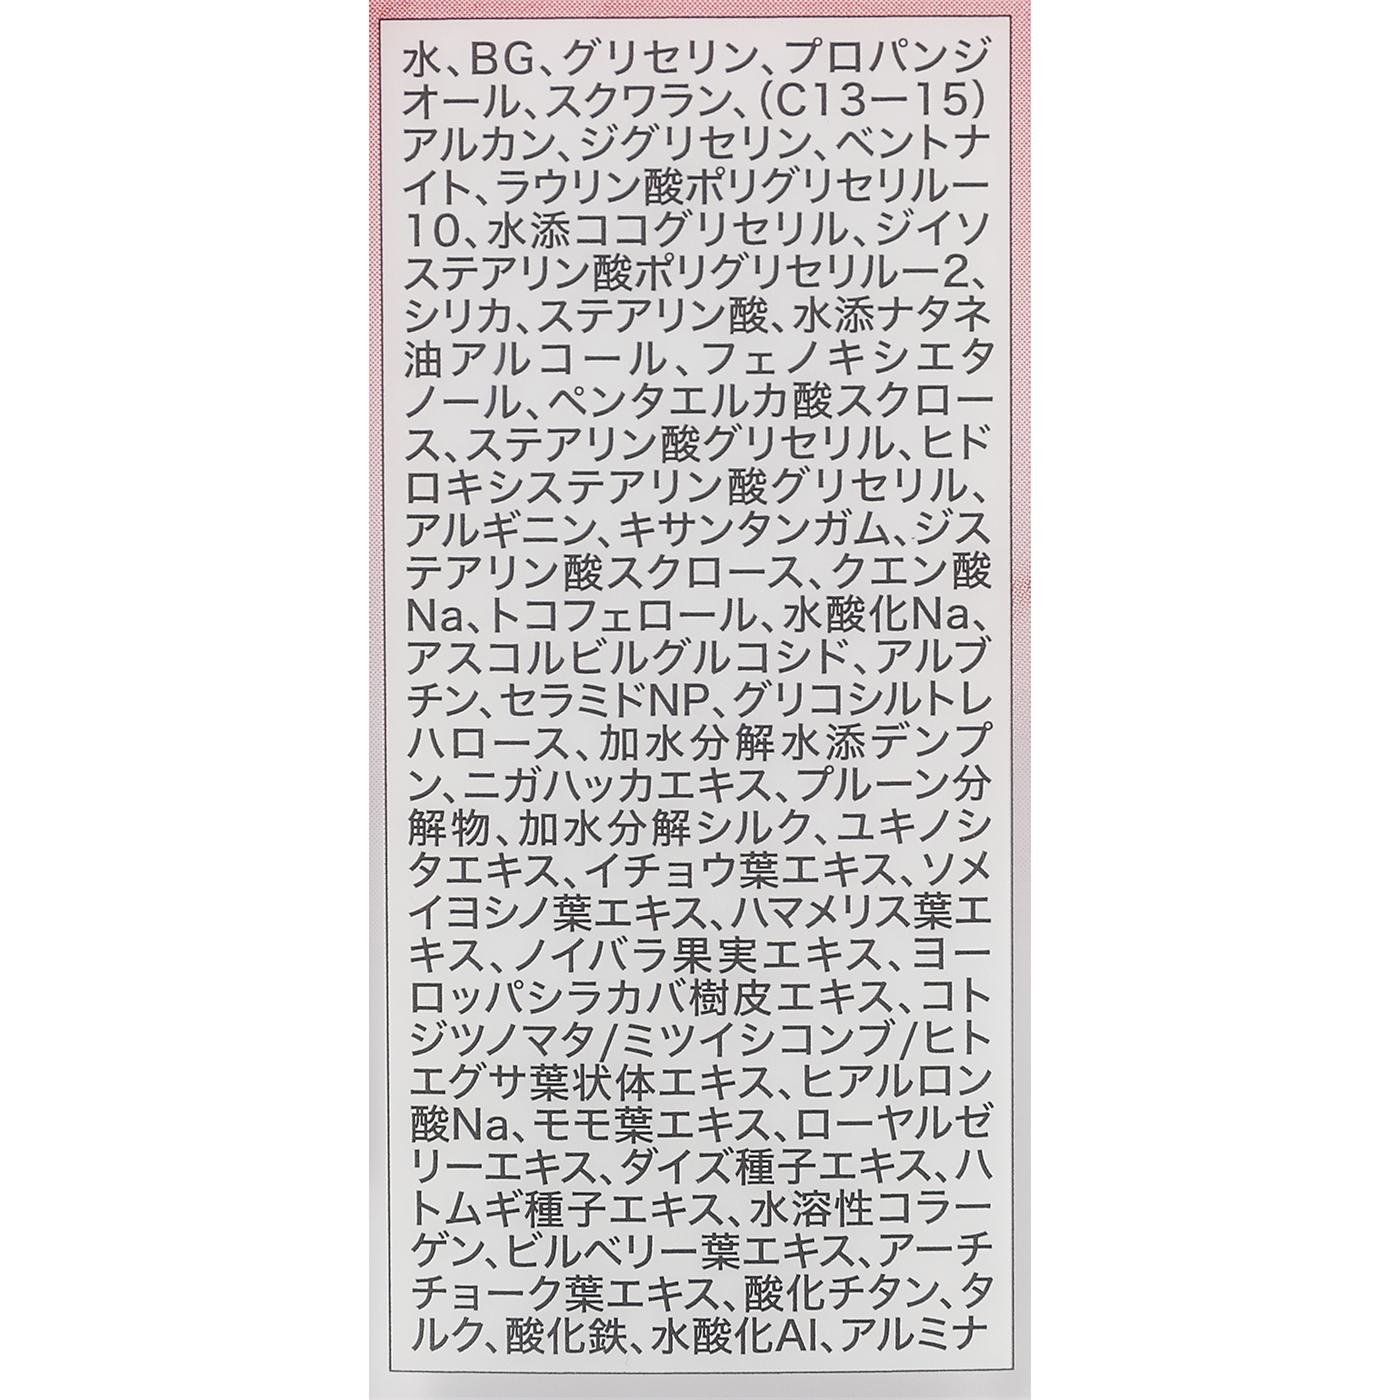 水、BG、グリセリン、プロパンジ
オール、スクワラン、(C13ー15)
アルカン、ジグリセリン、ベントナ
イト、ラウリン酸ポリグリセリルー
10、水添ココグリセリル、ジイソ
ステアリン酸ポリグリセリルー2、
シリカ、ステアリン酸、水添ナタネ
油アルコール、フェノキシエタ
ノール、ペンタエルカ酸スクロー
ス、ステアリン酸グリセリル、ヒド
ロキシステアリン酸グリセリル、
アルギニン、キサンタンガム、ジス
テアリン酸スクロース、クエン酸
Na、トコフェロール、水酸化Na、
アスコルビルグルコシド、アルブ
チン、セラミドNP、グリコシルトレ
ハロース、加水分解水添デンプ
ン、ニガハッカエキス、プルーン分
解物、加水分解シルク、ユキノシ
タエキス、イチョウ葉エキス、ソメ
イヨシノ葉エキス、ハマメリス葉エ
キス、ノイバラ果実エキス、ヨー
ロッパシラカバ樹皮エキス、コト
ジツノマタ/ミツイシコンブ/ヒト
エグサ葉状体エキス、ヒアルロン
酸Na、モモ葉エキス、ローヤルゼ
リーエキス、ダイズ種子エキス、ハ
トムギ種子エキス、水溶性コラー
ゲン、ビルベリー葉エキス、アーチ
チョーク葉エキス、酸化チタン、タ
ルク、酸化鉄、水酸化Al、アルミナ